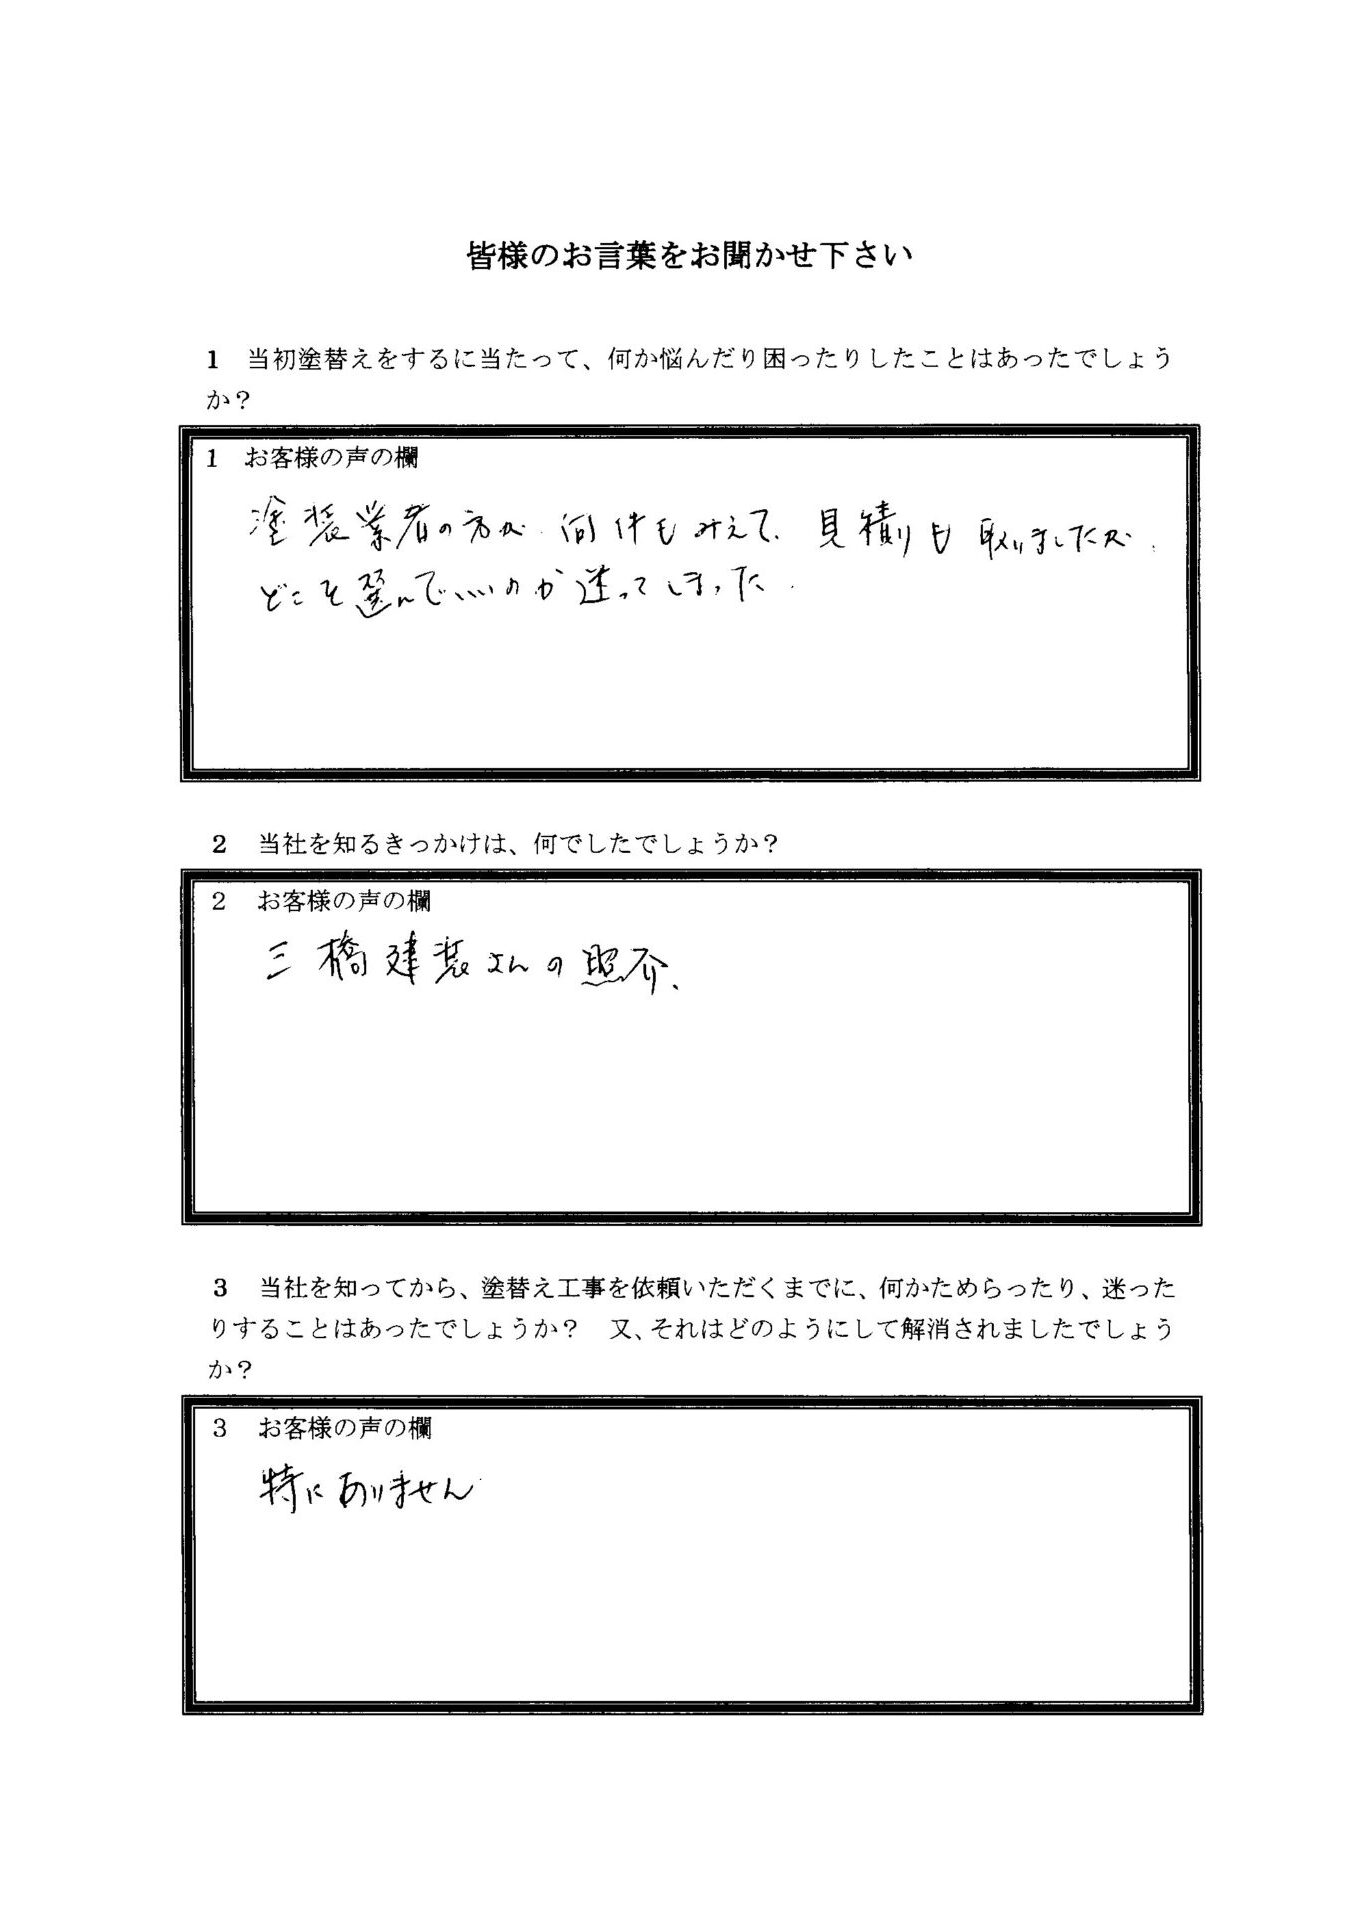 皆様のお言葉をお聞かせ下さい
1 当初塗替えをするに当たって、何か悩んだり困ったりしたことはあったでしょう
か？
1 お客様の声の欄
塗装業者の方が何件もみえて、見積りも取りましたが、
どこを選んでいいのか迷ってしまった.
2 当社を知るきっかけは、何でしたでしょうか？
2 お客様の声の欄
三橋建装さんの照介、
3 当社を知ってから、塗替え工事を依頼いただくまでに、何かためらったり、迷った
りすることはあったでしょうか？ 又、それはどのようにして解消されましたでしょう
か？
3 お客様の声の欄
特にありません